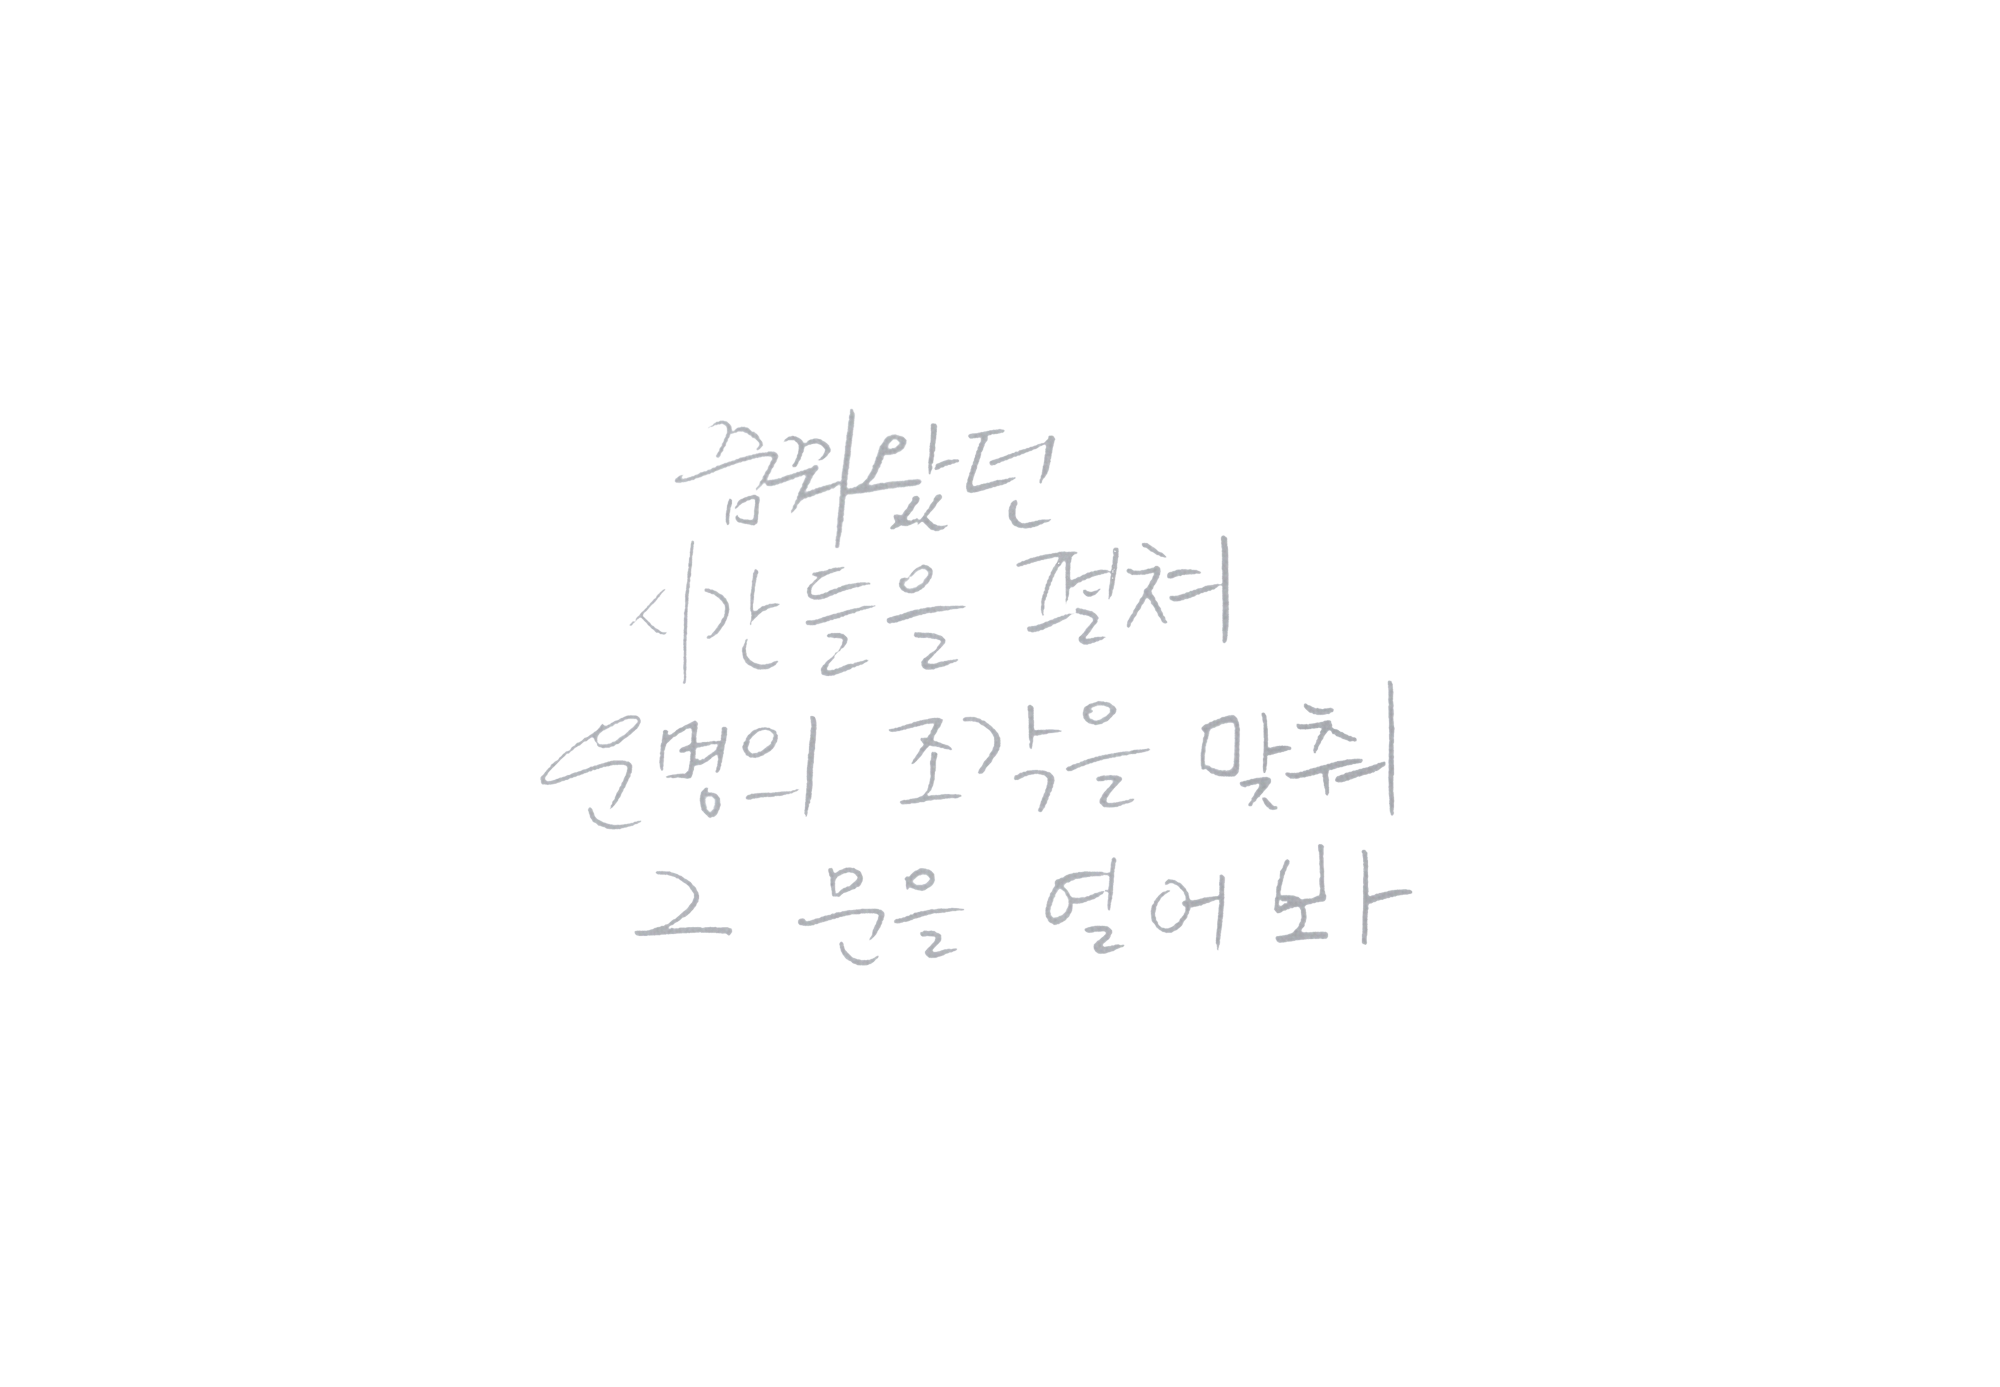 꿈꿔왔던
시간들을 펼쳐
운명의 조각을 맞춰
그 문을 열어봐